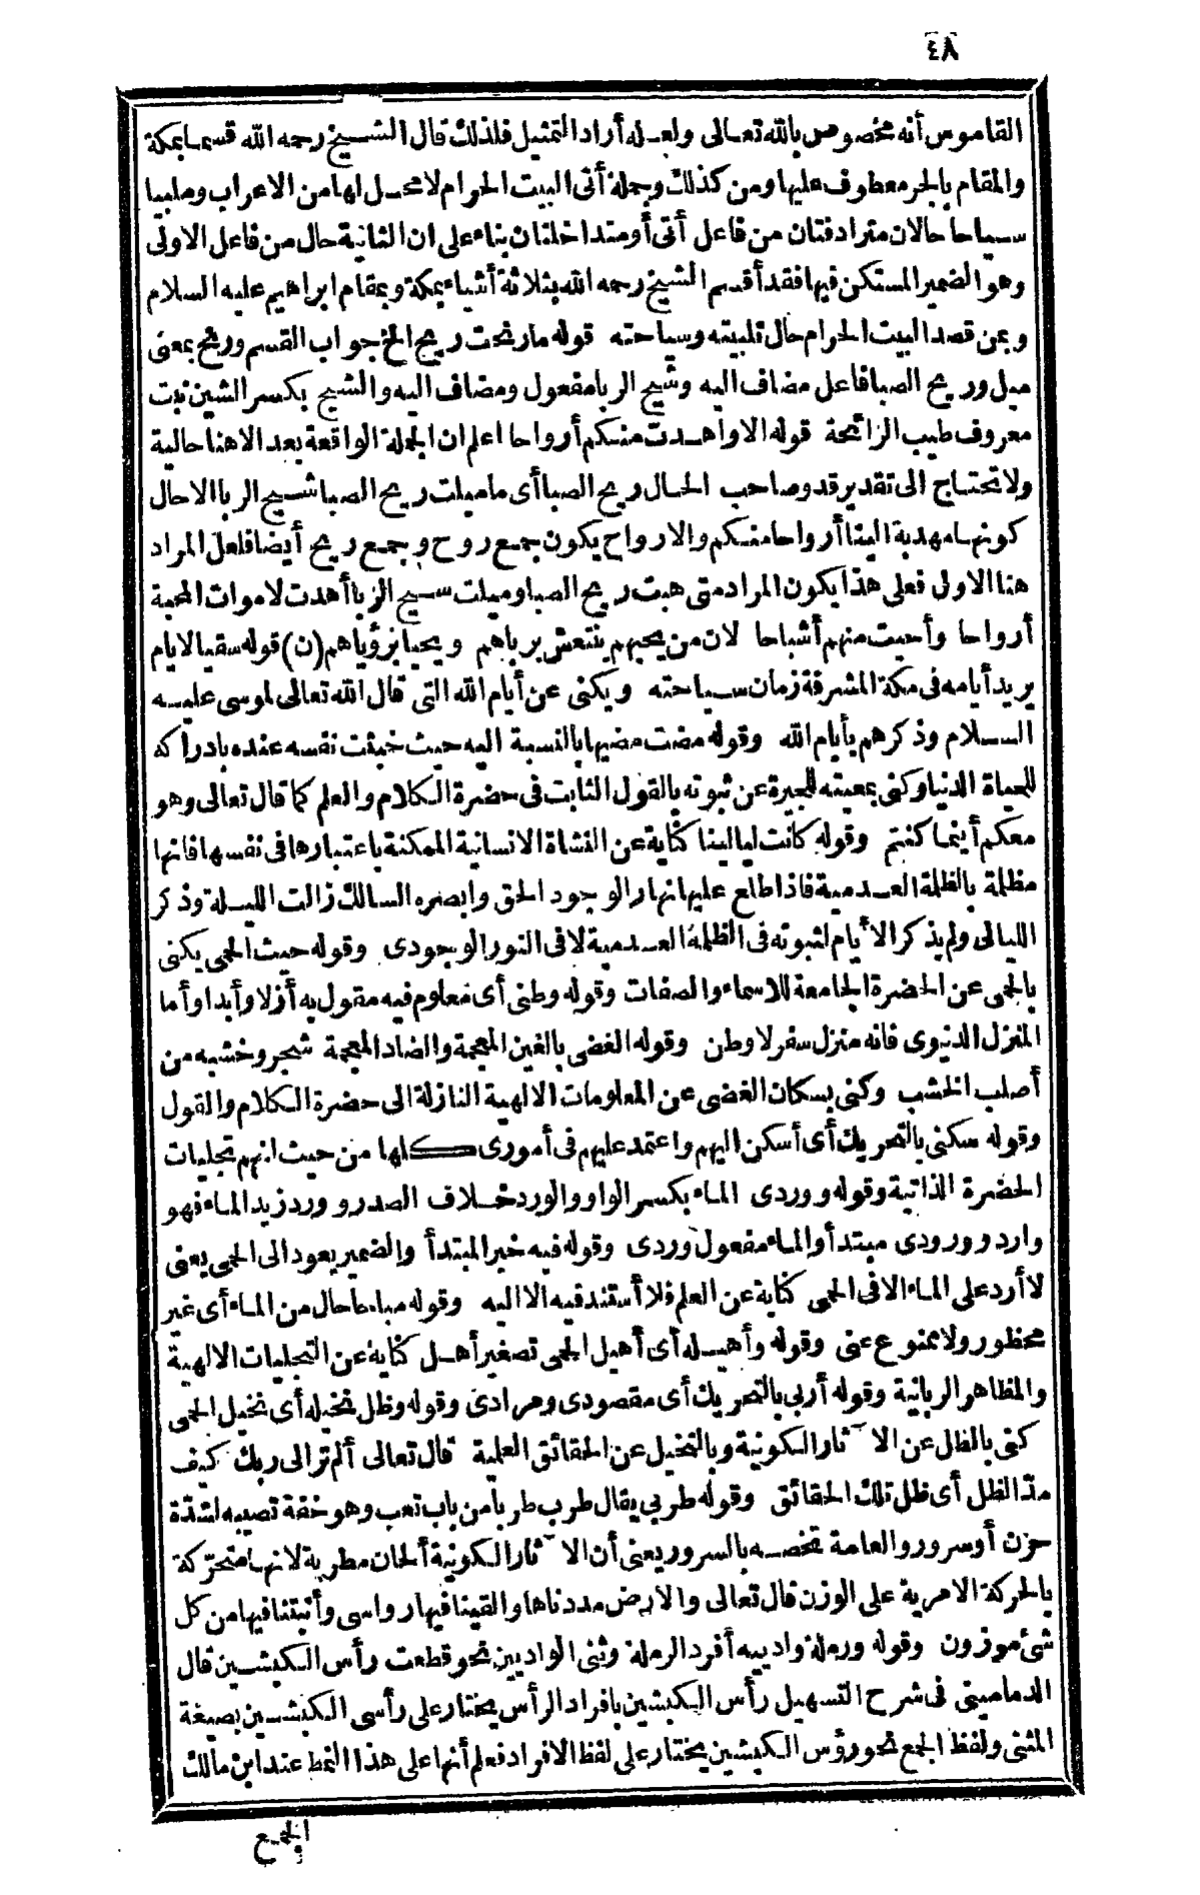 ٤٨
القاموس أنه مخصوص بالله تعالى ولعله أراد التمثيل فلذلك قال الشيخ رحمه الله قسما بمكة
والمقام بالجر معطوف عليها ومن كذلك وجملة أتى البيت الحرام لا محل لها من الاعراب وملبيا
سياحا حالان مترادفتان من فاعل أتى أو متداخلتان بناء على ان الثانية حال من فاعل الاولى
وهو الضمير المستكن فيها فقد أقسم الشيخ رحمه الله بثلاثة أشياء بمكة وبمقام ابراهيم عليه السلام
وبمن قصد البيت الحرام حال تلبيته وسياحته قوله ما رنحت ريح الخ جواب القسم ورنح بمعنى
ميل وريح الصبا فاعل مضاف اليه وشيح الربا مفعول ومضاف اليه والشيح بكسر الشين نبت
معروف طيب الرائحة قوله الا وأهدت منكم أرواحا اعلم ان الجملة الواقعة بعد الا هنا حالية
ولا تحتاج الى تقدير قد وصاحب الحال ريح الصبا أى ما ميلت ريح الصبا شيح الربا الا حال
كونها مهدية الينا أرواحا منكم والارواح يكون جمع روح وجمع ريح أيضا فلعل المراد
هنا الاولى فعلى هذا يكون المراد متى هبت ريح الصبا وميلت سيح الربا أهدت لاموات المحبة
أرواحا وأحيت منهم أشباحا لان من يحبهم ينتعش برياهم ويحيا برؤياهم (ن) قوله سقيا لايام
يريد أيامه فى مكة المشرفة زمان سياحته ويكنى عن أيام الله التى قال الله تعالى لموسى عليه
السلام وذكرهم بأيام الله وقوله مضت مضيها بالنسبة اليه حيث خبثت نفسه عنده بادراكه
للحياة الدنيا وكنى بمعيته للجيرة عن ثبوته بالقول الثابت فى حضرة الكلام والعلم كما قال تعالى وهو
معكم أينما كنتم وقوله كانت ليالينا كناية عن النشاة الانسانية الممكنة باعتبارها فى نفسها فانها
مظلمة بالظلمة العدمية فاذا طلع عليها نهار الوجود الحق وابصره السالك زالت الليلة وذكر
الليالى ولم يذكر الأيام لثبوته فى الظلمة العدمية لا فى النور الوجودى وقوله حيث الحمى يكنى
بالحمى عن الحضرة الجامعة للاسماء والصفات وقوله وطنى أى معلوم فيه مقول به أزلا وأبدا وأما
المنزل الدنيوى فانه منزل سفر لا وطن وقوله الغضى بالغين المعجمة والضاد المعجمة شجر وخشبه من
أصلب الخشب وكنى بسكان الغضى عن المعلومات الالهية النازلة الى حضرة الكلام والقول
وقوله سكنى بالتحريك أى أسكن اليهم واعتمد عليهم فى أمورى كلها من حيث انهم تجليات
الحضرة الذاتية وقوله ووردى الماء بكسر الواو والورد خلاف الصدر وورد زيد الماء فهو
وارد وورودى مبتدأ والماء مفعول وردى وقوله فيه خبر المبتدأ والضمير يعود الى الحمى يعنى
لا أرد على الماء الا فى الحمى كناية عن العلم فلا أستند فيه الا اليه وقوله مباحا حال من الماء أى غير
محظور ولا ممنوع عنى وقوله وأهيله أى أهيل الحمى تصغير أهل كناية عن التجليات الالهية
والمظاهر الربانية وقوله أربى بالتحريك أى مقصودى ومرادى وقوله وظل نخيله أى نخيل الحمى
كنى بالظل عن الآثار الكونية وبالنخيل عن الحقائق العلمية قال تعالى ألم تر الى ربك كيف
مد الظل أى ظل تلك الحقائق وقوله طربى يقال طرب طربا من باب تعب وهو خفة تصيبه لشدة
حزن أو سرور والعامة تخصه بالسرور يعنى أن الآثار الكونية ألحان مطربة لانها متحركة
بالحركة الامرية على الوزن قال تعالى والارض مددناها والقينا فيها رواسى وأنبتنا فيها من كل
شئ موزون وقوله ورملة وادييه أفرد الرملة وثنى الواديين نحو قطعت رأس الكبشين قال
الدمامينى فى شرح التسهيل رأس الكبشين بافراد الرأس يختار على رأسى الكبشين بصيغة
المثنى ولفظ الجمع نحو رؤس الكبشين يختار على لفظ الافراد فعلم أنها على هذا النمط عند ابن مالك
الجمع